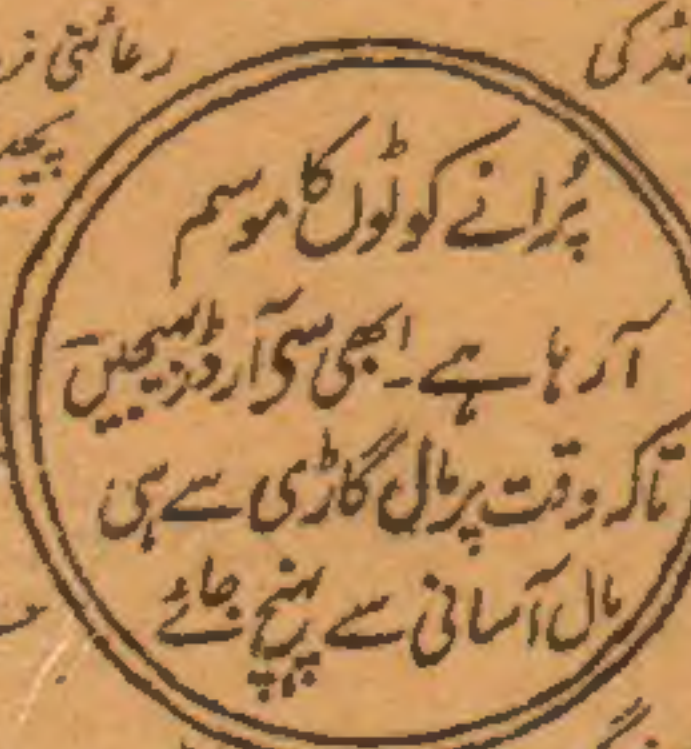 رعائتی
کی
پُرانے کوٹوں کا موسم
آرہا ہے۔ ابھی سی آرڈر بھیجیں
تاکہ وقت پر مال گاڑی سے ہی
مال آسانی سے پہنچ جائے